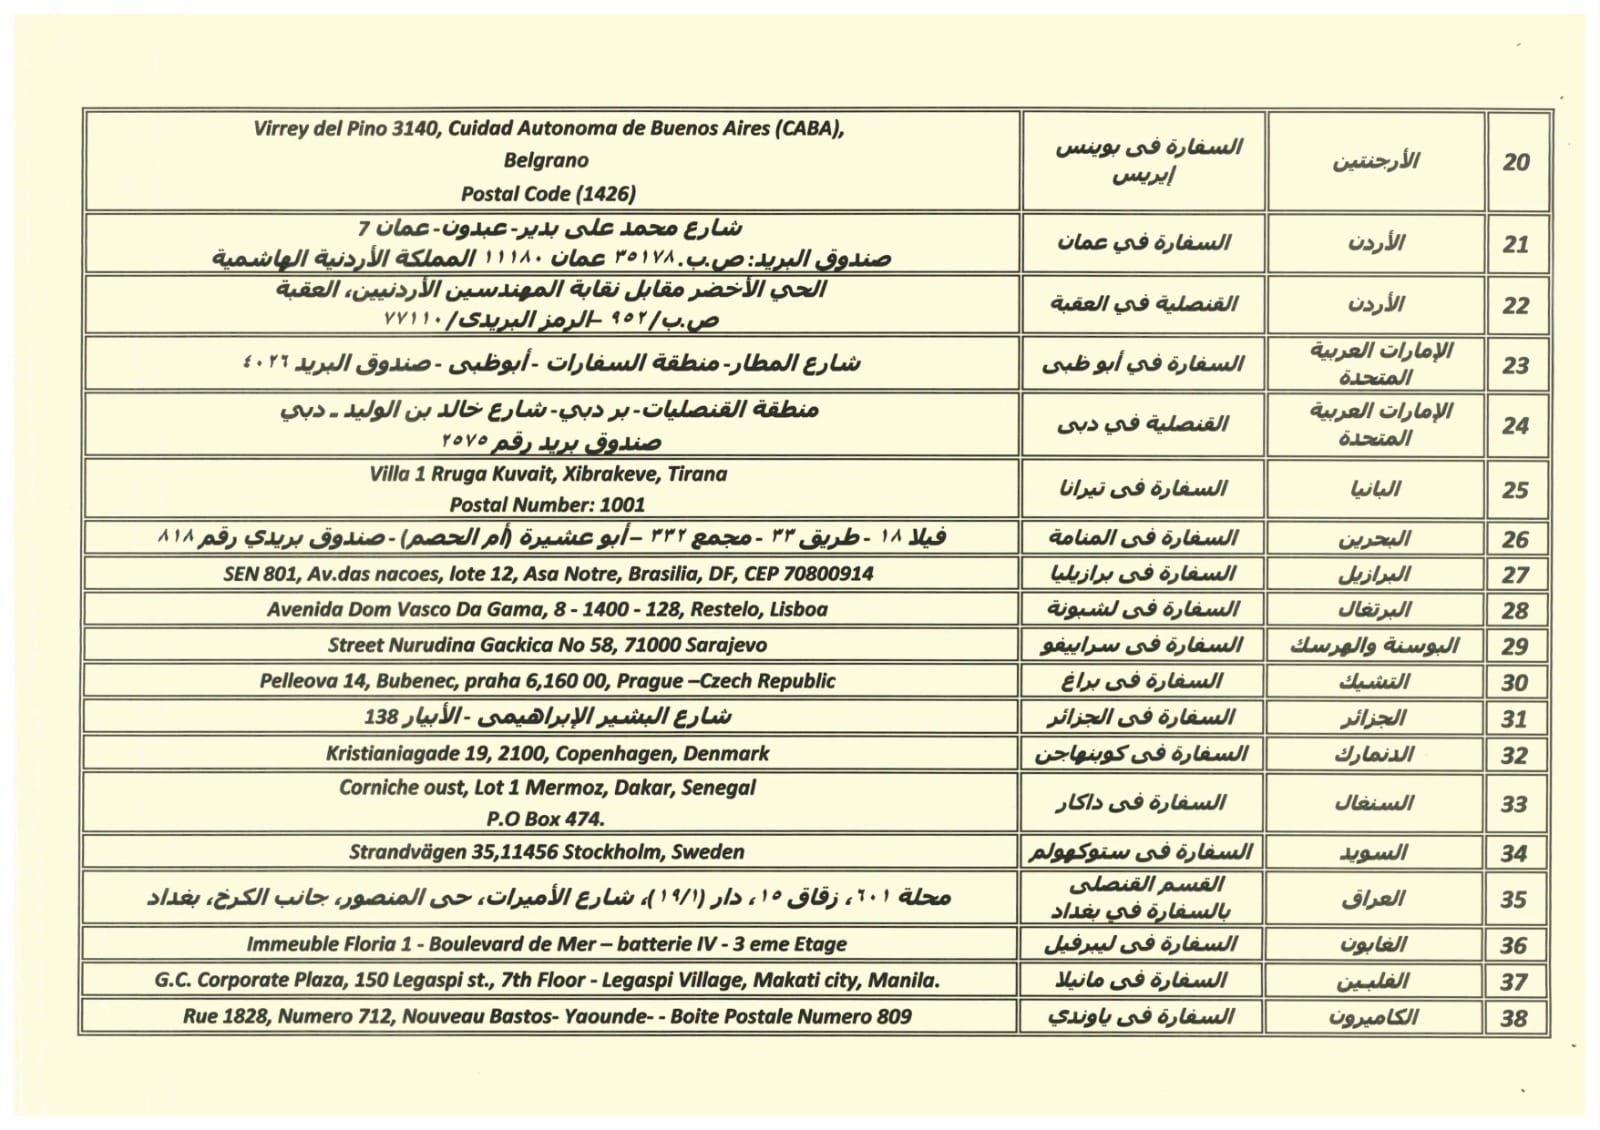 20
الأرجنتين
السفارة فى بوينس
إيريس
Virrey del Pino 3140, Cuidad Autonoma de Buenos Aires (CABA),
Belgrano
Postal Code (1426)
21
الأردن
السفارة في عمان
شارع محمد على بدير- عبدون- عمان 7
صندوق البريد: ص.ب. ٣٥١٧٨ عمان ١١١٨٠ المملكة الأردنية الهاشمية
22
الأردن
القنصلية في العقبة
الحي الأخضر مقابل نقابة المهندسين الأردنيين، العقبة
ص.ب/ ٩٥٢ –الرمز البريدى/ ٧٧١١٠
23
الإمارات العربية
المتحدة
السفارة في أبو ظبى
شارع المطار- منطقة السفارات - أبوظبى - صندوق البريد ٤٠٢٦
24
الإمارات العربية
المتحدة
القنصلية في دبى
منطقة القنصليات- بر دبي- شارع خالد بن الوليد ـ دبي
صندوق بريد رقم ٢٥٧٥
25
البانيا
السفارة فى تيرانا
Villa 1 Rruga Kuvait, Xibrakeve, Tirana
Postal Number: 1001
26
البحرين
السفارة فى المنامة
فيلا ١٨ - طريق ٣٣ - مجمع ٣٣٢ – أبو عشيرة (أم الحصم) - صندوق بريدي رقم ٨١٨
27
البرازيل
السفارة فى برازيليا
SEN 801, Av.das nacoes, lote 12, Asa Notre, Brasilia, DF, CEP 70800914
28
البرتغال
السفارة فى لشبونة
Avenida Dom Vasco Da Gama, 8 - 1400 - 128, Restelo, Lisboa
29
البوسنة والهرسك
السفارة فى سراييفو
Street Nurudina Gackica No 58, 71000 Sarajevo
30
التشيك
السفارة فى براغ
Pelleova 14, Bubenec, praha 6,160 00, Prague –Czech Republic
31
الجزائر
السفارة فى الجزائر
شارع البشير الإبراهيمى - الأبيار 138
32
الدنمارك
السفارة فى كوبنهاجن
Kristianiagade 19, 2100, Copenhagen, Denmark
33
السنغال
السفارة فى داكار
Corniche oust, Lot 1 Mermoz, Dakar, Senegal
P.O Box 474.
34
السويد
السفارة فى ستوكهولم
Strandvägen 35,11456 Stockholm, Sweden
35
العراق
القسم القنصلى
بالسفارة في بغداد
محلة ٦٠١، زقاق ١٥، دار (١٩/١)، شارع الأميرات، حى المنصور، جانب الكرخ، بغداد
36
الغابون
السفارة فى ليبرفيل
Immeuble Floria 1 - Boulevard de Mer – batterie IV - 3 eme Etage
37
الفلبين
السفارة فى مانيلا
G.C. Corporate Plaza, 150 Legaspi st., 7th Floor - Legaspi Village, Makati city, Manila.
38
الكاميرون
السفارة فى ياوندي
Rue 1828, Numero 712, Nouveau Bastos- Yaounde- - Boite Postale Numero 809